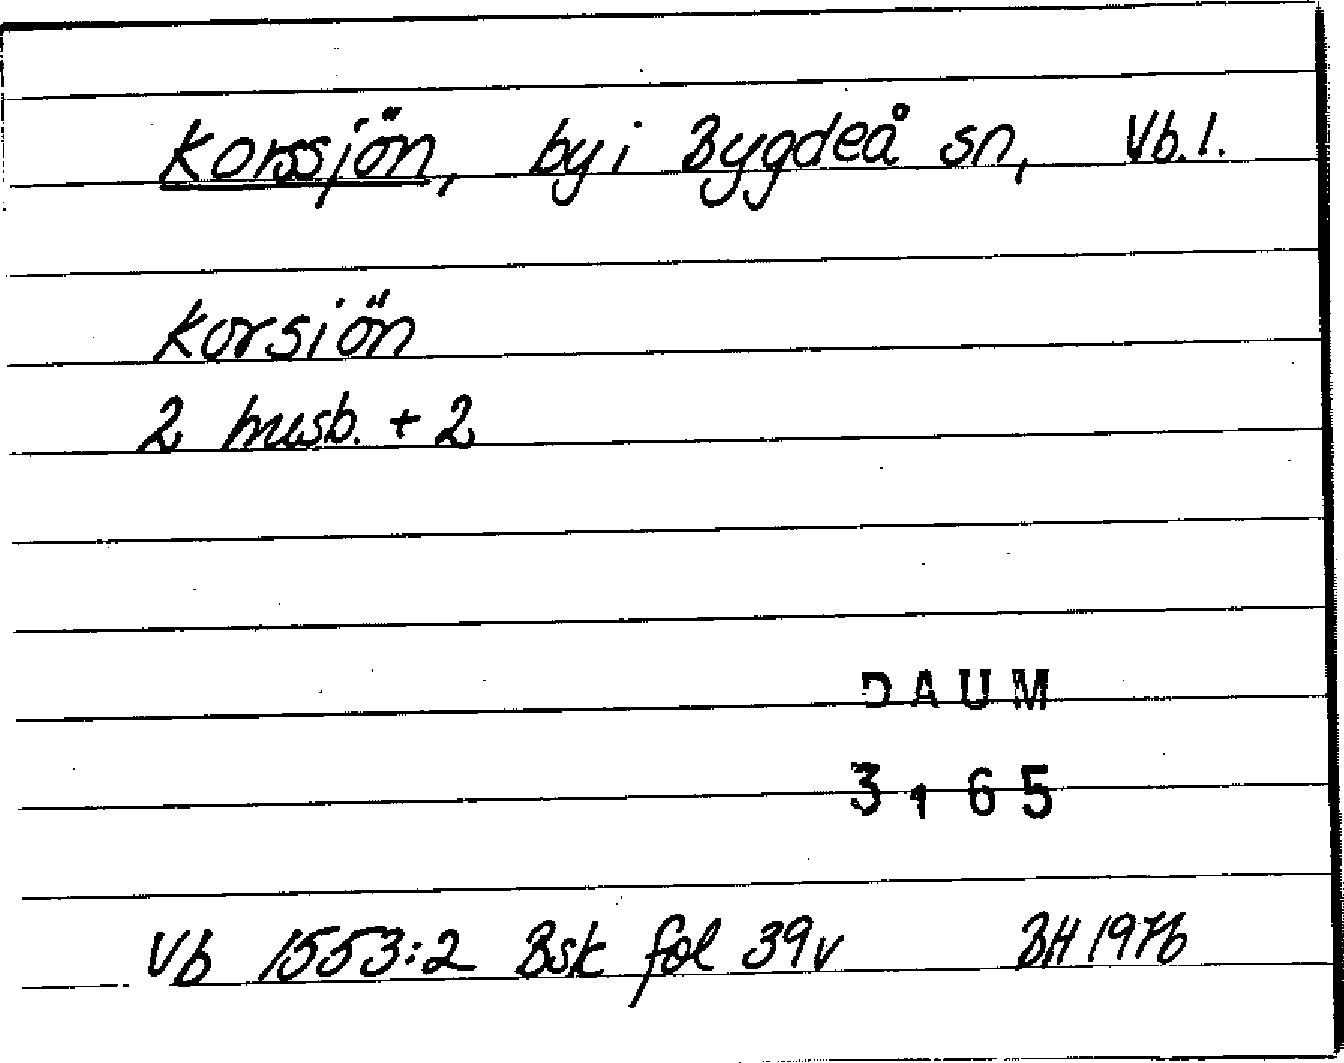 Korssjön, by i Bygdeå sn, Vb.l.
Korsiön
2 husb. + 2
DAUM
3165
Vb 1553:2 Bsk fol 39v BH 1976